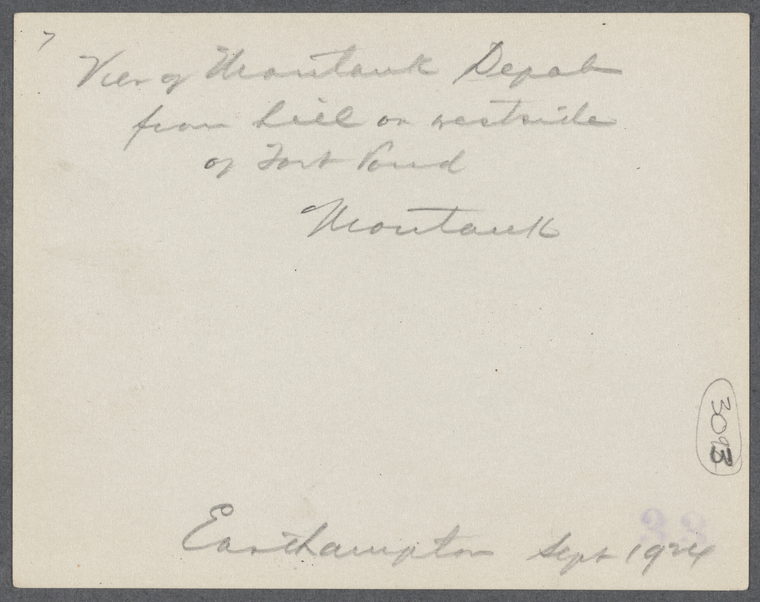 7
View of Montauk Depot
from hill on westside
of Fort Pond
Montauk
3093
33
Easthampton Sept 1924